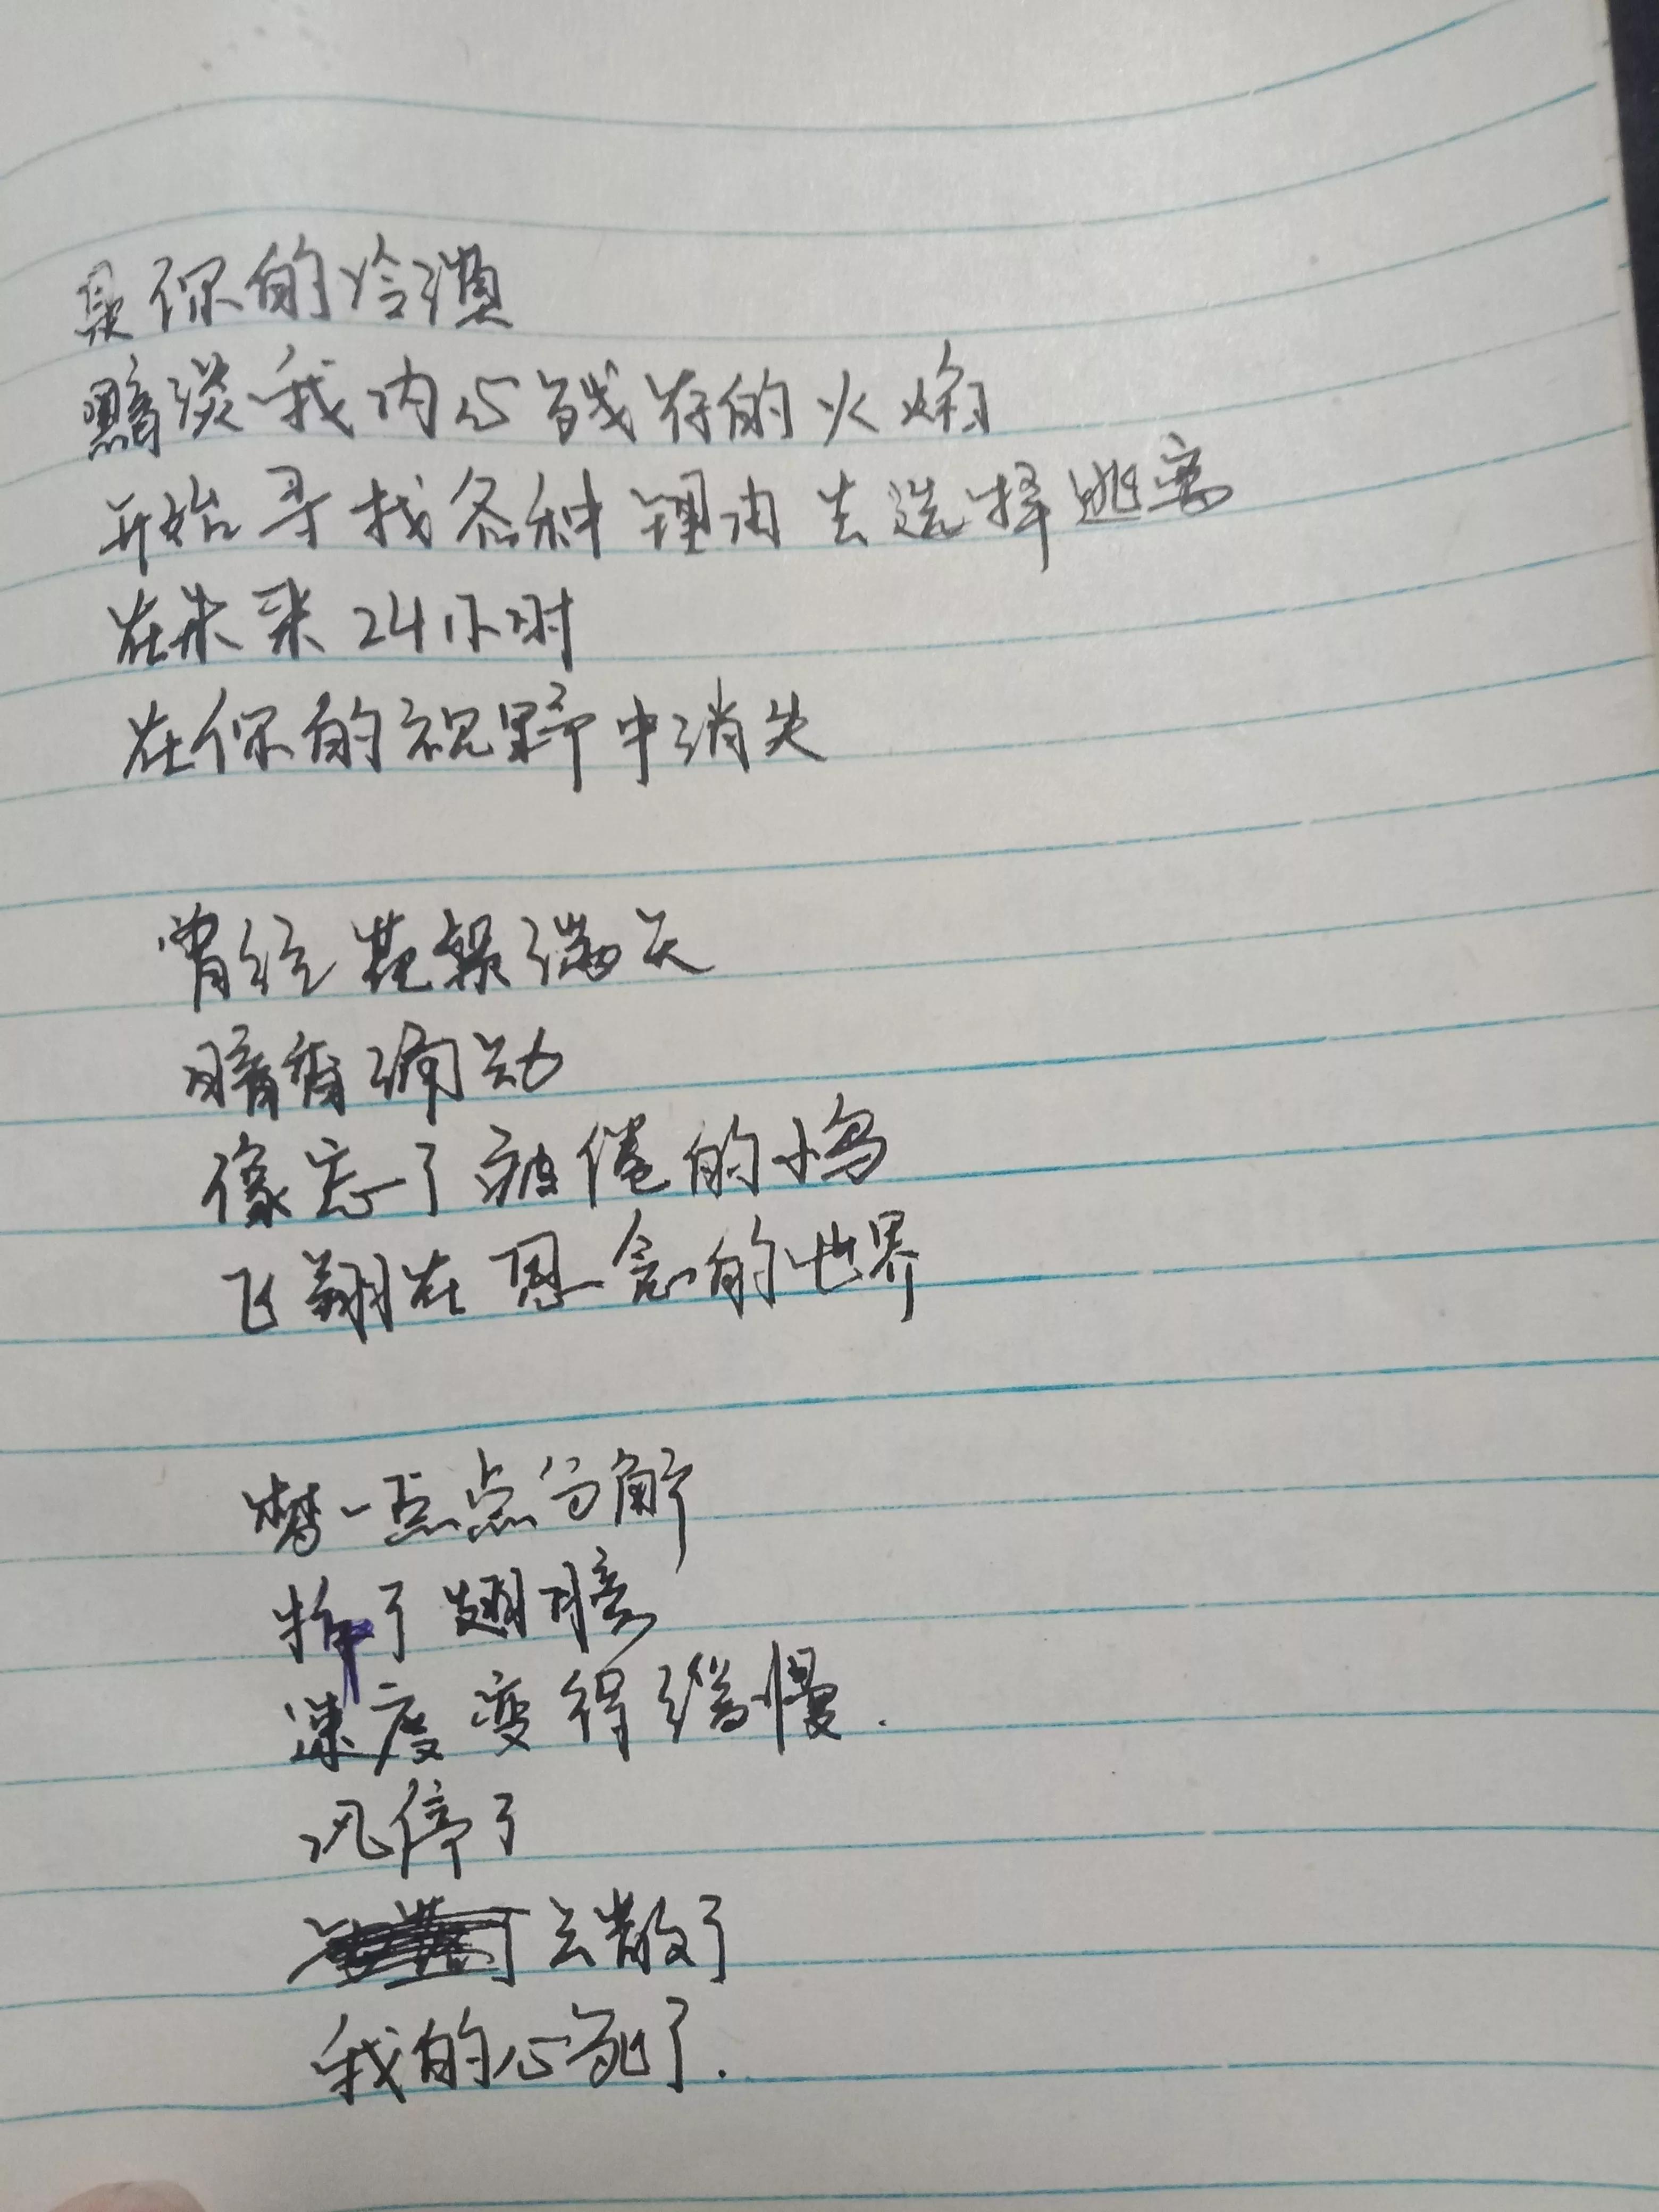 是你的冷漠
黯淡我内心残存的火焰
开始寻找各种理由去选择逃离
在未来24小时
在你的视野中消失
曾经花絮满天
暗香涌动
像忘了疲倦的小鸟
飞翔在思念的世界
梦一点点分解
折了翅膀
速度变得缓慢.
风停了
云散了
我的心死了.